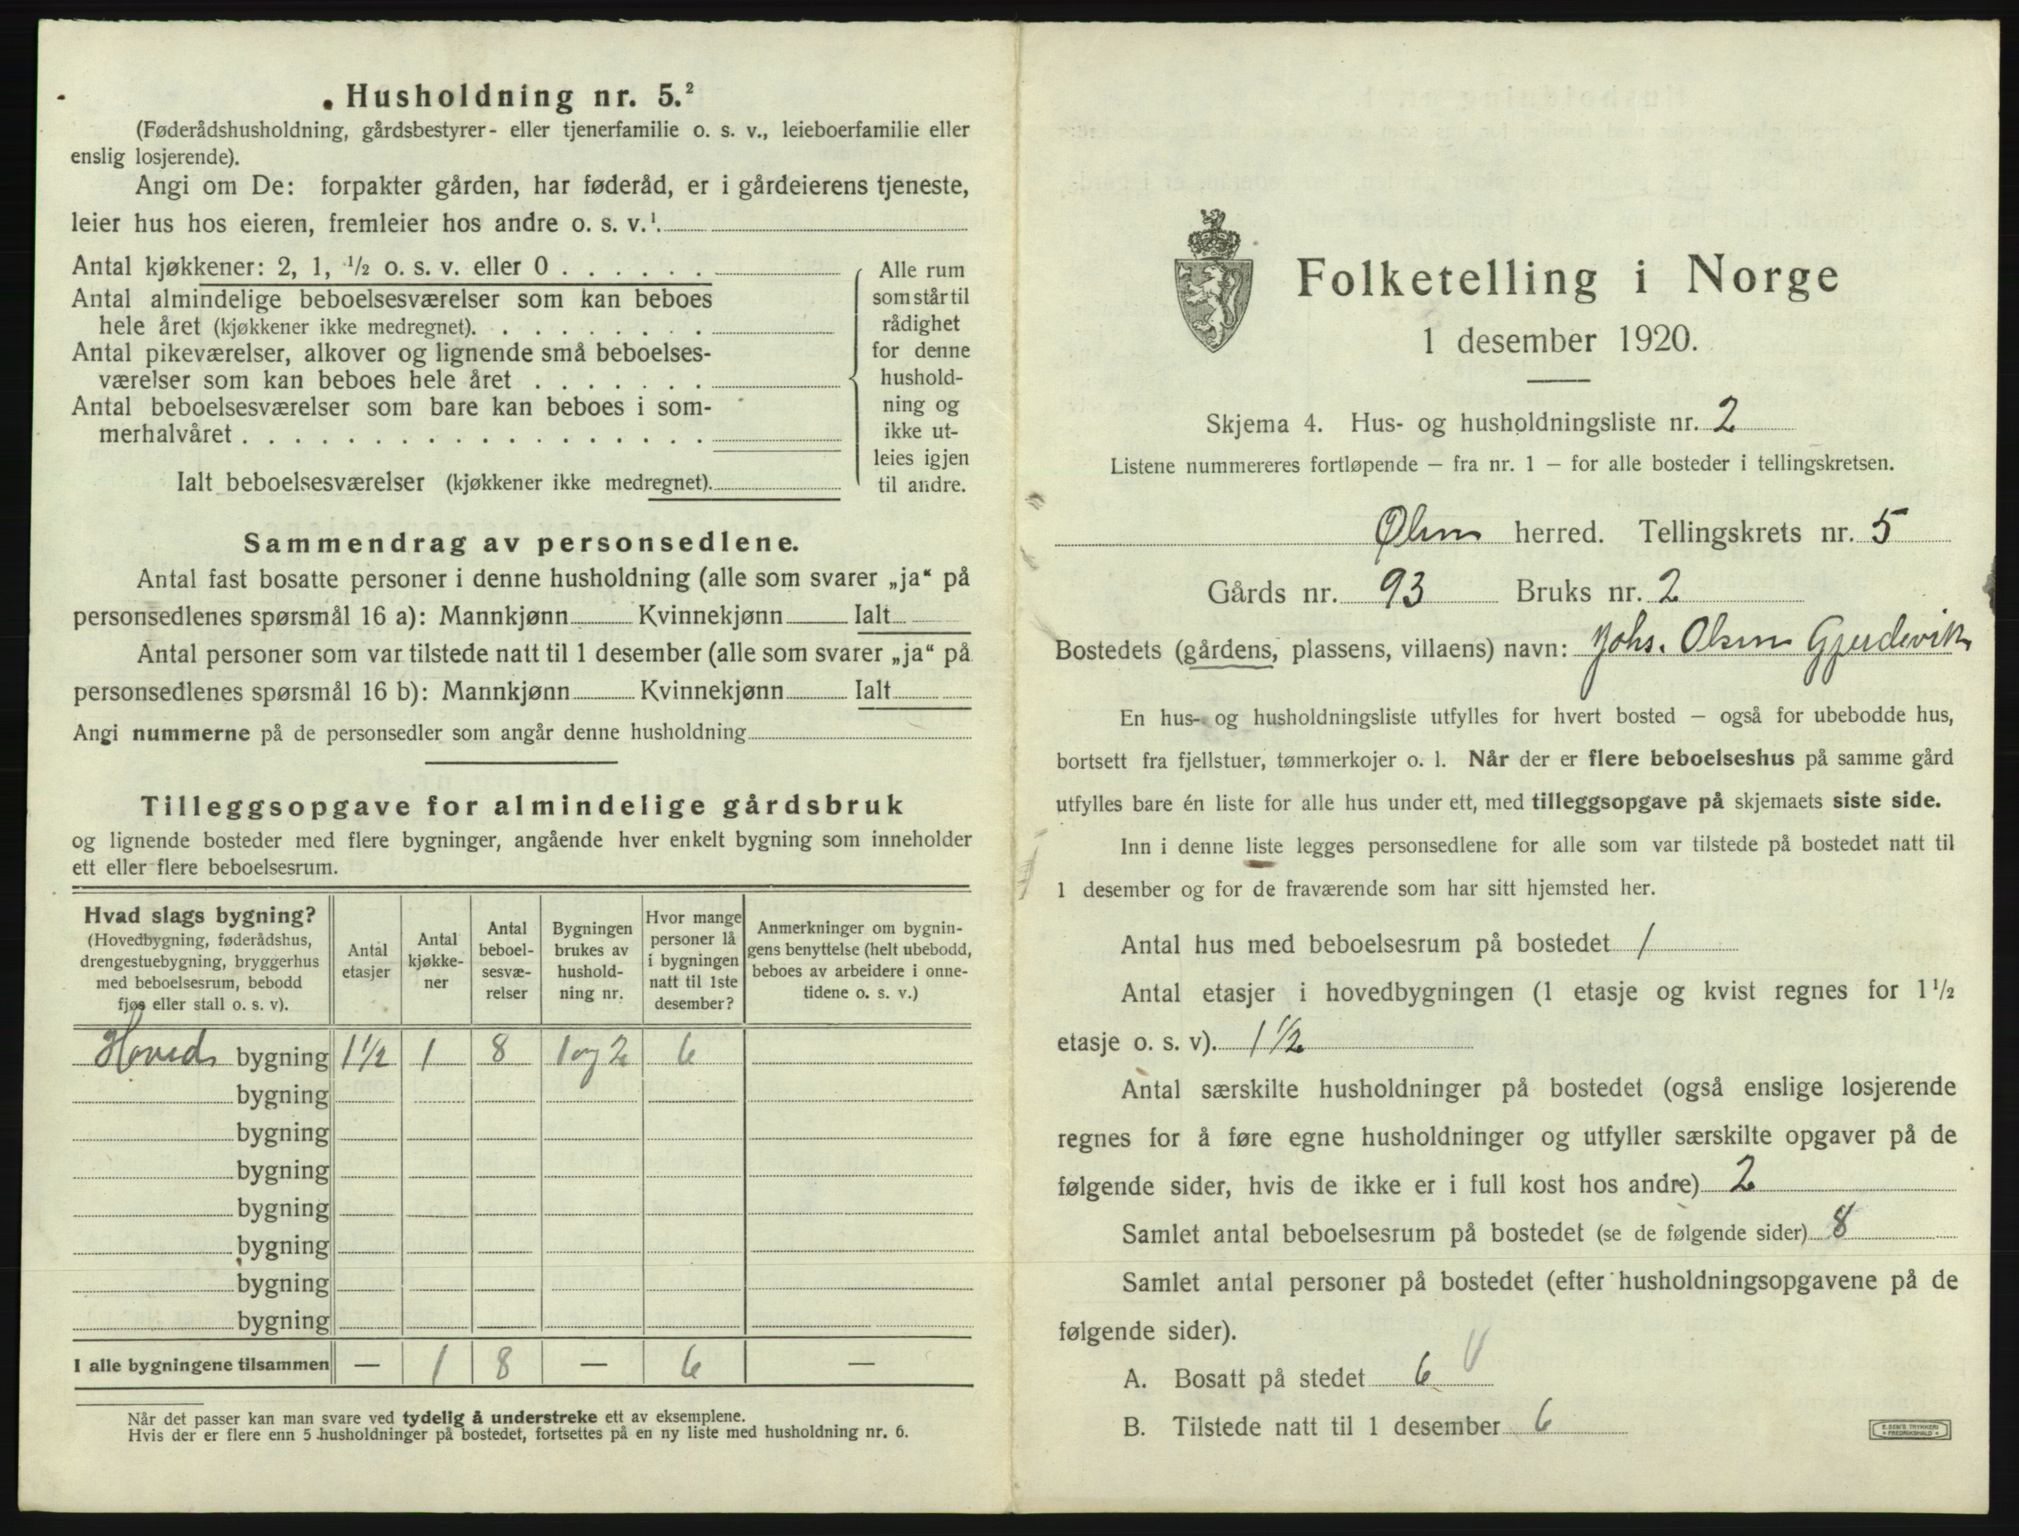 Husholdning nr. 5.²
(Føderådshusholdning, gårdsbestyrer- eller tjenerfamilie o. s. v., leieboerfamilie eller
enslig losjerende).
Angi om De: forpakter gården, har føderåd, er i gårdeierens tjeneste,
leier hus hos eieren, fremleier hos andre o. s. v.¹.
Antal kjøkkener: 2, 1, ½ o. s. v. eller 0 . . . . . .
Antal almindelige beboelsesværelser som kan beboes
hele året (kjøkkener ikke medregnet). . . . . . . . . .
Antal pikeværelser, alkover og lignende små beboelses-
værelser som kan beboes hele året . . . . . . .
Antal beboelsesværelser som bare kan beboes i som-
merhalvåret . . . . . . . . . . . . . . . . . .
Ialt beboelsesværelser (kjøkkener ikke medregnet).
Alle rum
som står til
rådighet
for denne
hushold-
ning og
ikke ut-
leies igjen
til andre.
Sammendrag av personsedlene.
Antal fast bosatte personer i denne husholdning (alle som svarer „ja“ på
personsedlenes spørsmål 16 a): Mannkjønn Kvinnekjønn Ialt
Antal personer som var tilstede natt til 1 desember (alle som svarer „ja“ på
personsedlenes spørsmål 16 b): Mannkjønn Kvinnekjønn Ialt
Angi nummerne på de personsedler som angår denne husholdning
Tilleggsopgave for almindelige gårdsbruk
og lignende bosteder med flere bygninger, angående hver enkelt bygning som inneholder
ett eller flere beboelsesrum.
Hvad slags bygning?
(Hovedbygning, føderådshus,
drengestuebygning, bryggerhus
med beboelsesrum, bebodd
fjøs eller stall o. s. v).
Antal
etasjer
Antal
kjøkke-
ner
Antal
beboel-
sesvæ-
relser
Bygningen
brukes av
hushold-
ning nr.
Hvor mange
personer lå
i bygningen
natt til 1ste
desember?
Anmerkninger om bygnin-
gens benyttelse (helt ubebodd,
beboes av arbeidere i onne-
tidene o. s. v.)
Hoved bygning 1½ 1 8 1 og 2 6
bygning
bygning
bygning
bygning
bygning
bygning
bygning
I alle bygningene tilsammen — 1 8 — 6 —
Når det passer kan man svare ved tydelig å understreke ett av eksemplene.
Hvis der er flere enn 5 husholdninger på bostedet, fortsettes på en ny liste med husholdning nr. 6.
Folketelling i Norge
1 desember 1920.
Skjema 4. Hus- og husholdningsliste nr. 2
Listene nummereres fortløpende — fra nr. 1 — for alle bosteder i tellingskretsen.
Ølen herred. Tellingskrets nr. 5
Gårds nr. 93 Bruks nr. 2
Bostedets (gårdens, plassens, villaens) navn: Johs. Olsen Gjerdevik
En hus- og husholdningsliste utfylles for hvert bosted — også for ubebodde hus,
bortsett fra fjellstuer, tømmerkojer o. l. Når der er flere beboelseshus på samme gård
utfylles bare én liste for alle hus under ett, med tilleggsopgave på skjemaets siste side.
Inn i denne liste legges personsedlene for alle som var tilstede på bostedet natt til
1 desember og for de fraværende som har sitt hjemsted her.
Antal hus med beboelsesrum på bostedet 1
Antal etasjer i hovedbygningen (1 etasje og kvist regnes for 1½
etasje o. s. v). 1½
Antal særskilte husholdninger på bostedet (også enslige losjerende
regnes for å føre egne husholdninger og utfyller særskilte opgaver på de
følgende sider, hvis de ikke er i full kost hos andre) 2
Samlet antal beboelsesrum på bostedet (se de følgende sider) 8
Samlet antal personer på bostedet (efter husholdningsopgavene på de
følgende sider).
A. Bosatt på stedet 6
B. Tilstede natt til 1 desember 6
E. SEM'S TRYKKERI
FREDRIKSHALD